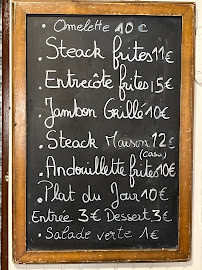 • Omelette 10 €
• Steack frites 11€
• Entrecôte frites 15€
• Jambon Grillé 10€
• Steack Maison 12€
(Casu)
• Andouillette frites 10€
• Plat du Jour 10€
Entrée 3€ Dessert 3€
• Salade verte 1€